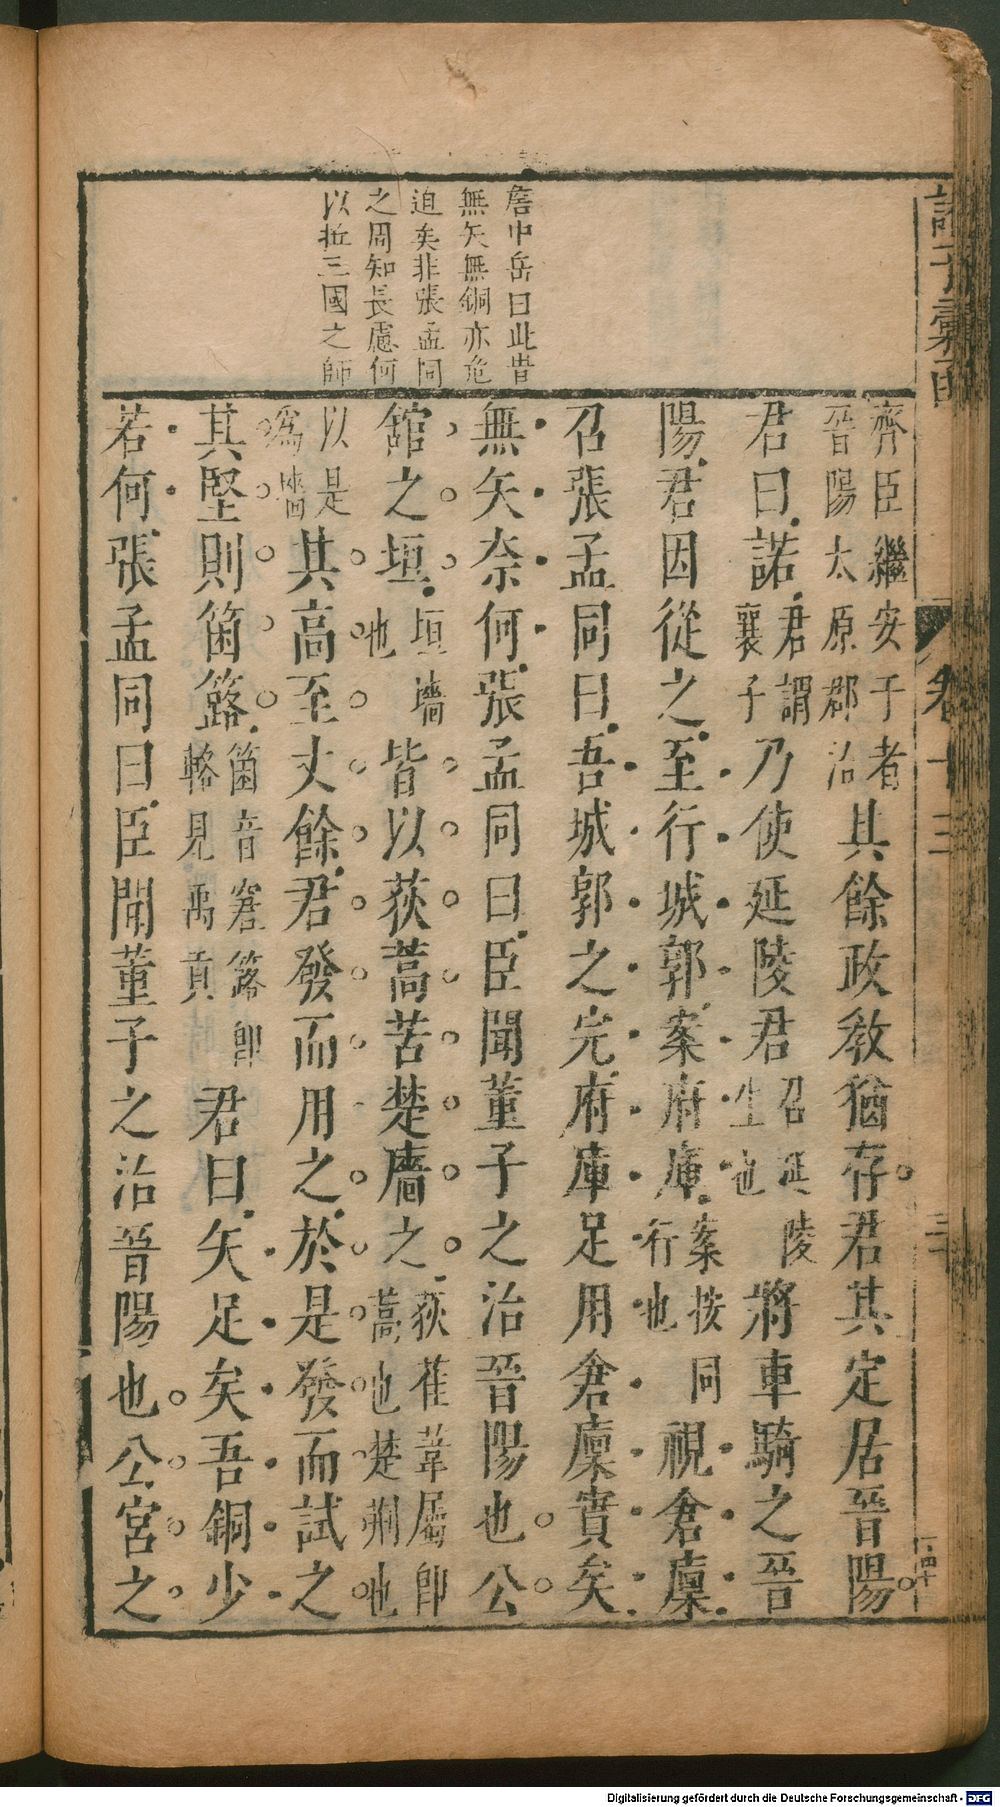 諸子彙函
卷十三
詹中岳曰此昔
無矢無銅亦危
迫矣非張孟同
之周知長慮何
以拒三國之師
齊臣繼安于者
晉陽太原郡治
其餘政教猶存君其定居晉陽
君曰諾君謂襄子乃使延陵君召延陵生也將車騎之晉
陽君因從之至行城郭案府庫案按同行也視倉廩
召張孟同曰吾城郭之完府庫足用倉廩實矣
無矢奈何張孟同曰臣聞董子之治晉陽也公
舘之垣垣墻也皆以荻蒿苦楚廧之荻萑葦屬即蒿也楚荆也
以是為墻其高至丈餘君發而用之於是發而試之
其堅則箘簬箘音窘簬即輅見禹貢君曰矢足矣吾銅少
若何張孟同曰臣聞董子之治晉陽也公宮之
Digitalisierung gefördert durch die Deutsche Forschungsgemeinschaft - DFG